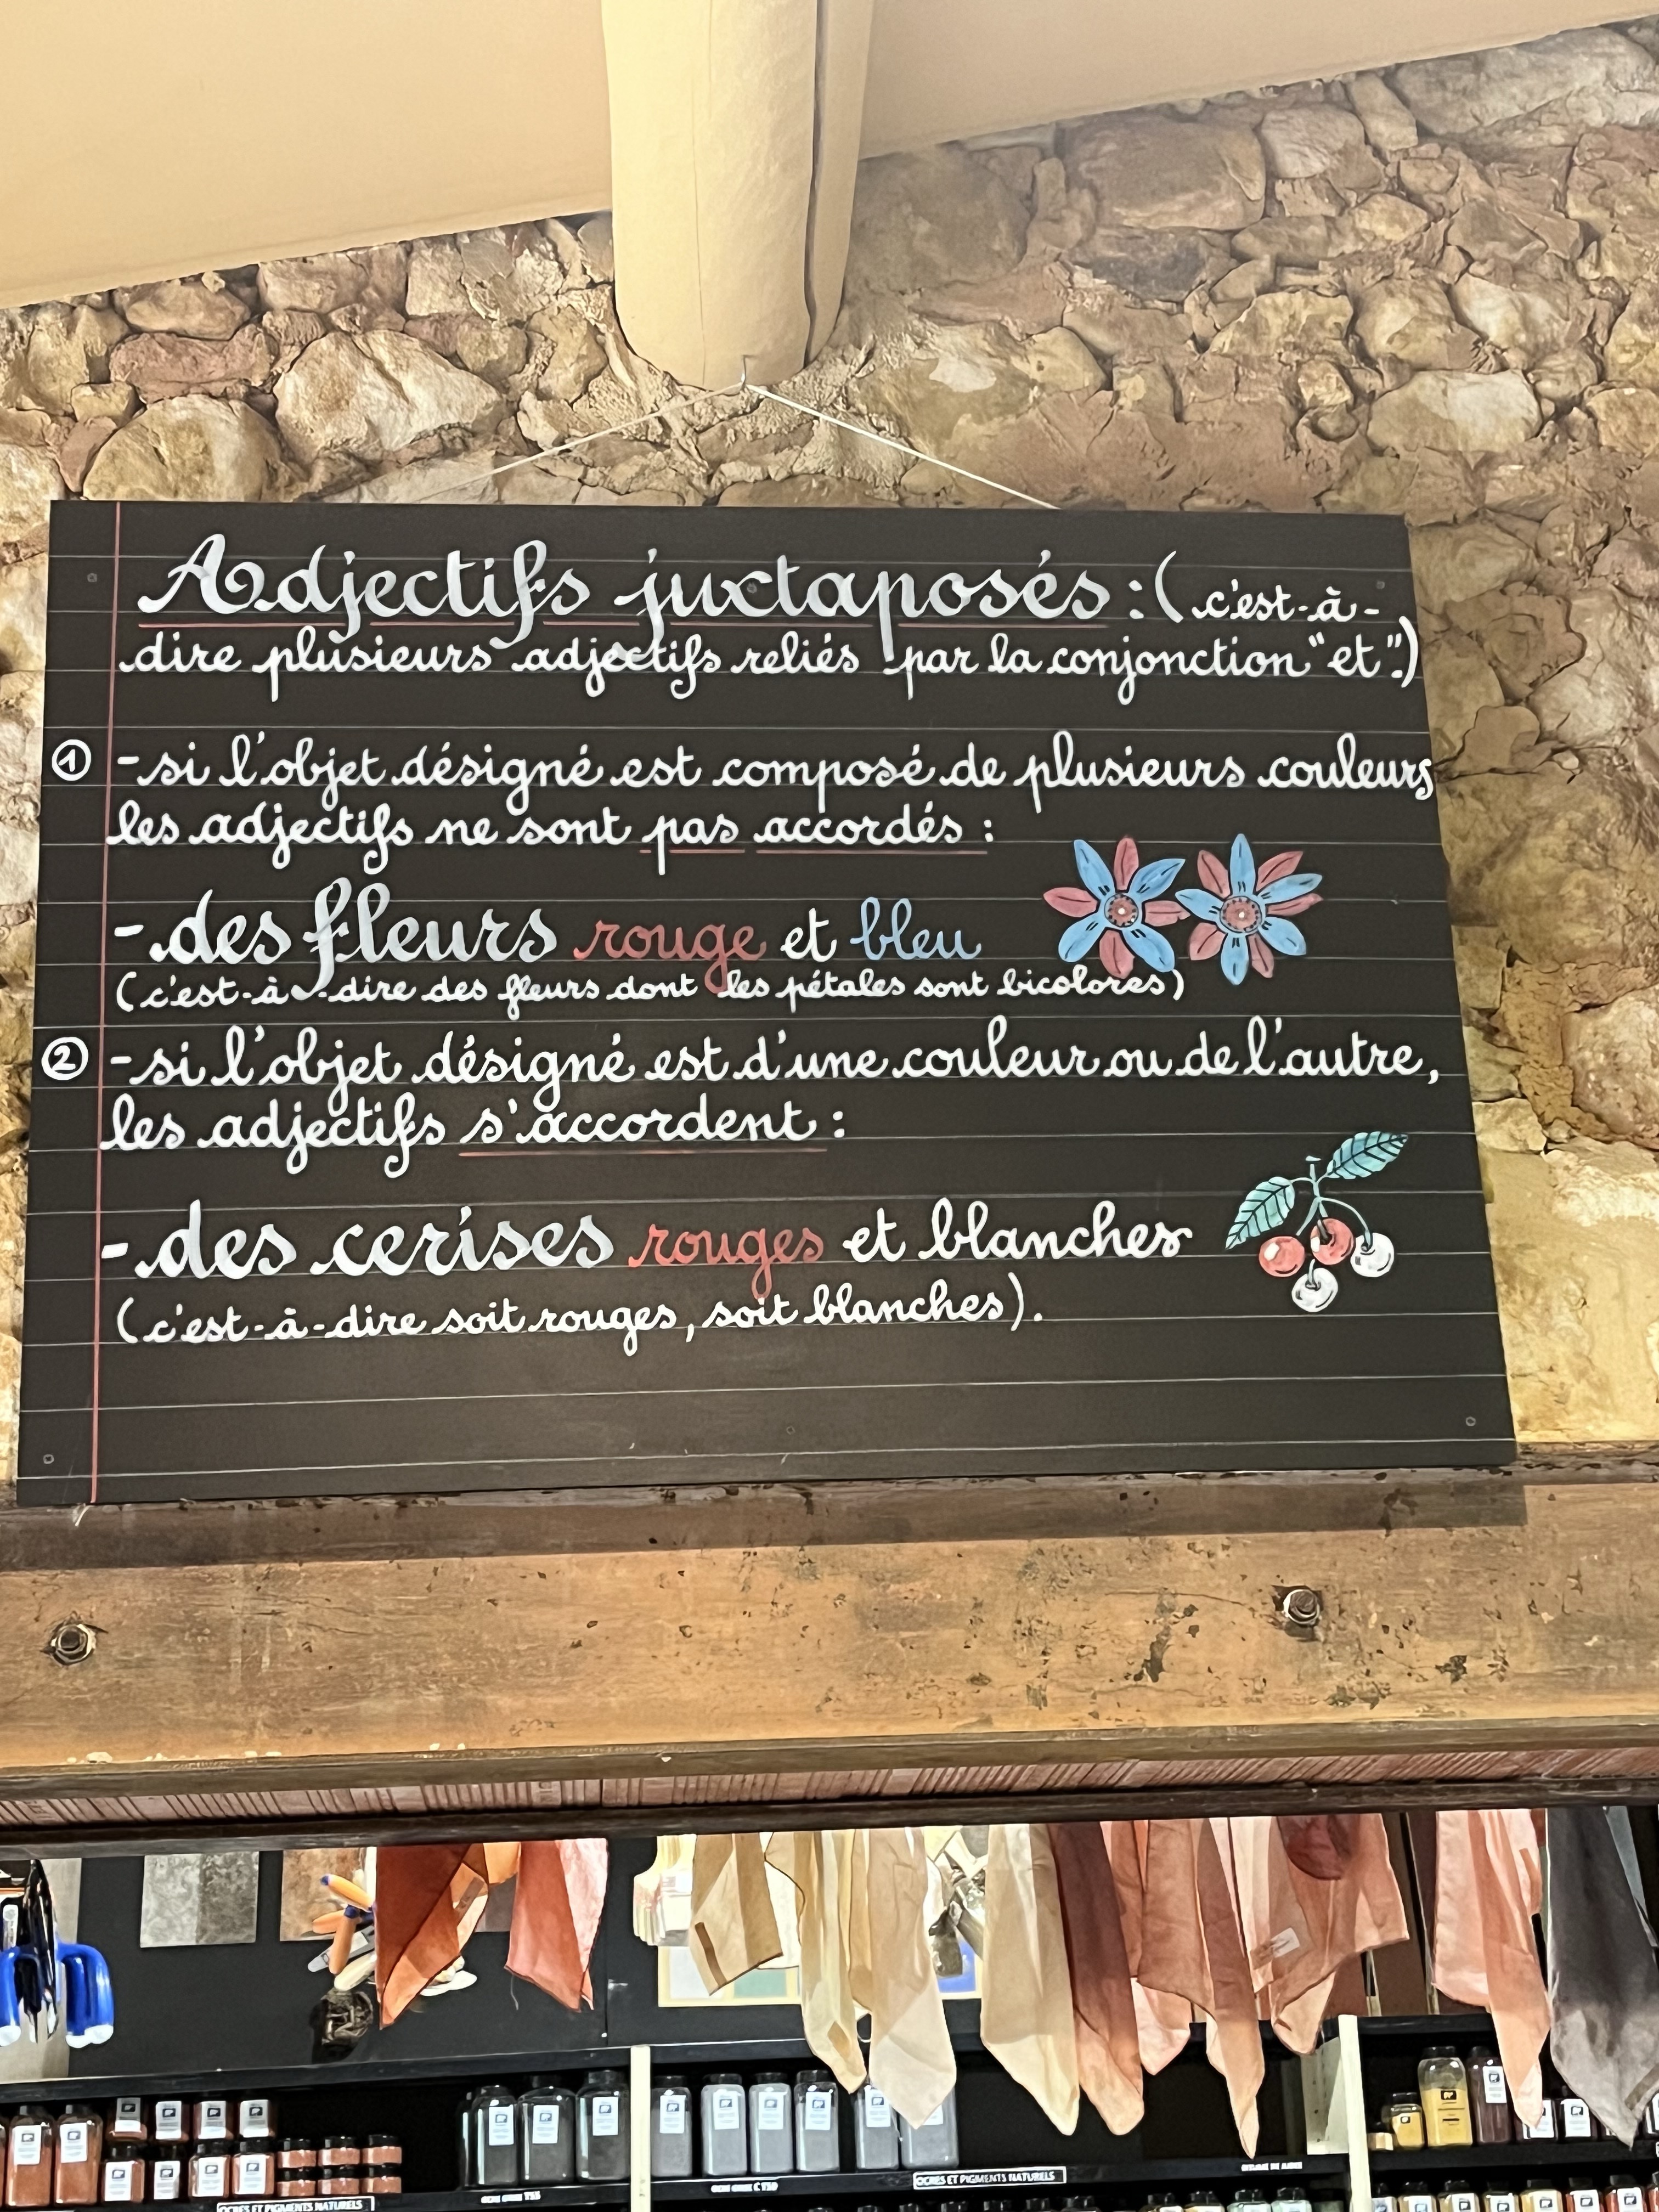 Adjectifs juxtaposés : (c'est-à-
dire plusieurs adjectifs reliés par la conjonction "et".)
① - si l'objet désigné est composé de plusieurs couleurs
les adjectifs ne sont pas accordés :
- des fleurs rouge et bleu
(c'est-à-dire des fleurs dont les pétales sont bicolores)
② - si l'objet désigné est d'une couleur ou de l'autre,
les adjectifs s'accordent :
- des cerises rouges et blanches
(c'est-à-dire soit rouges, soit blanches).
OCRES ET PIGMENTS NATURELS
OCRES ET PIGMENTS NATURELS